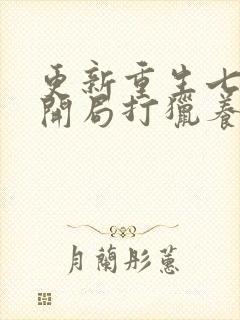 更新重生七
開局打獵養
月蘭彤蕙